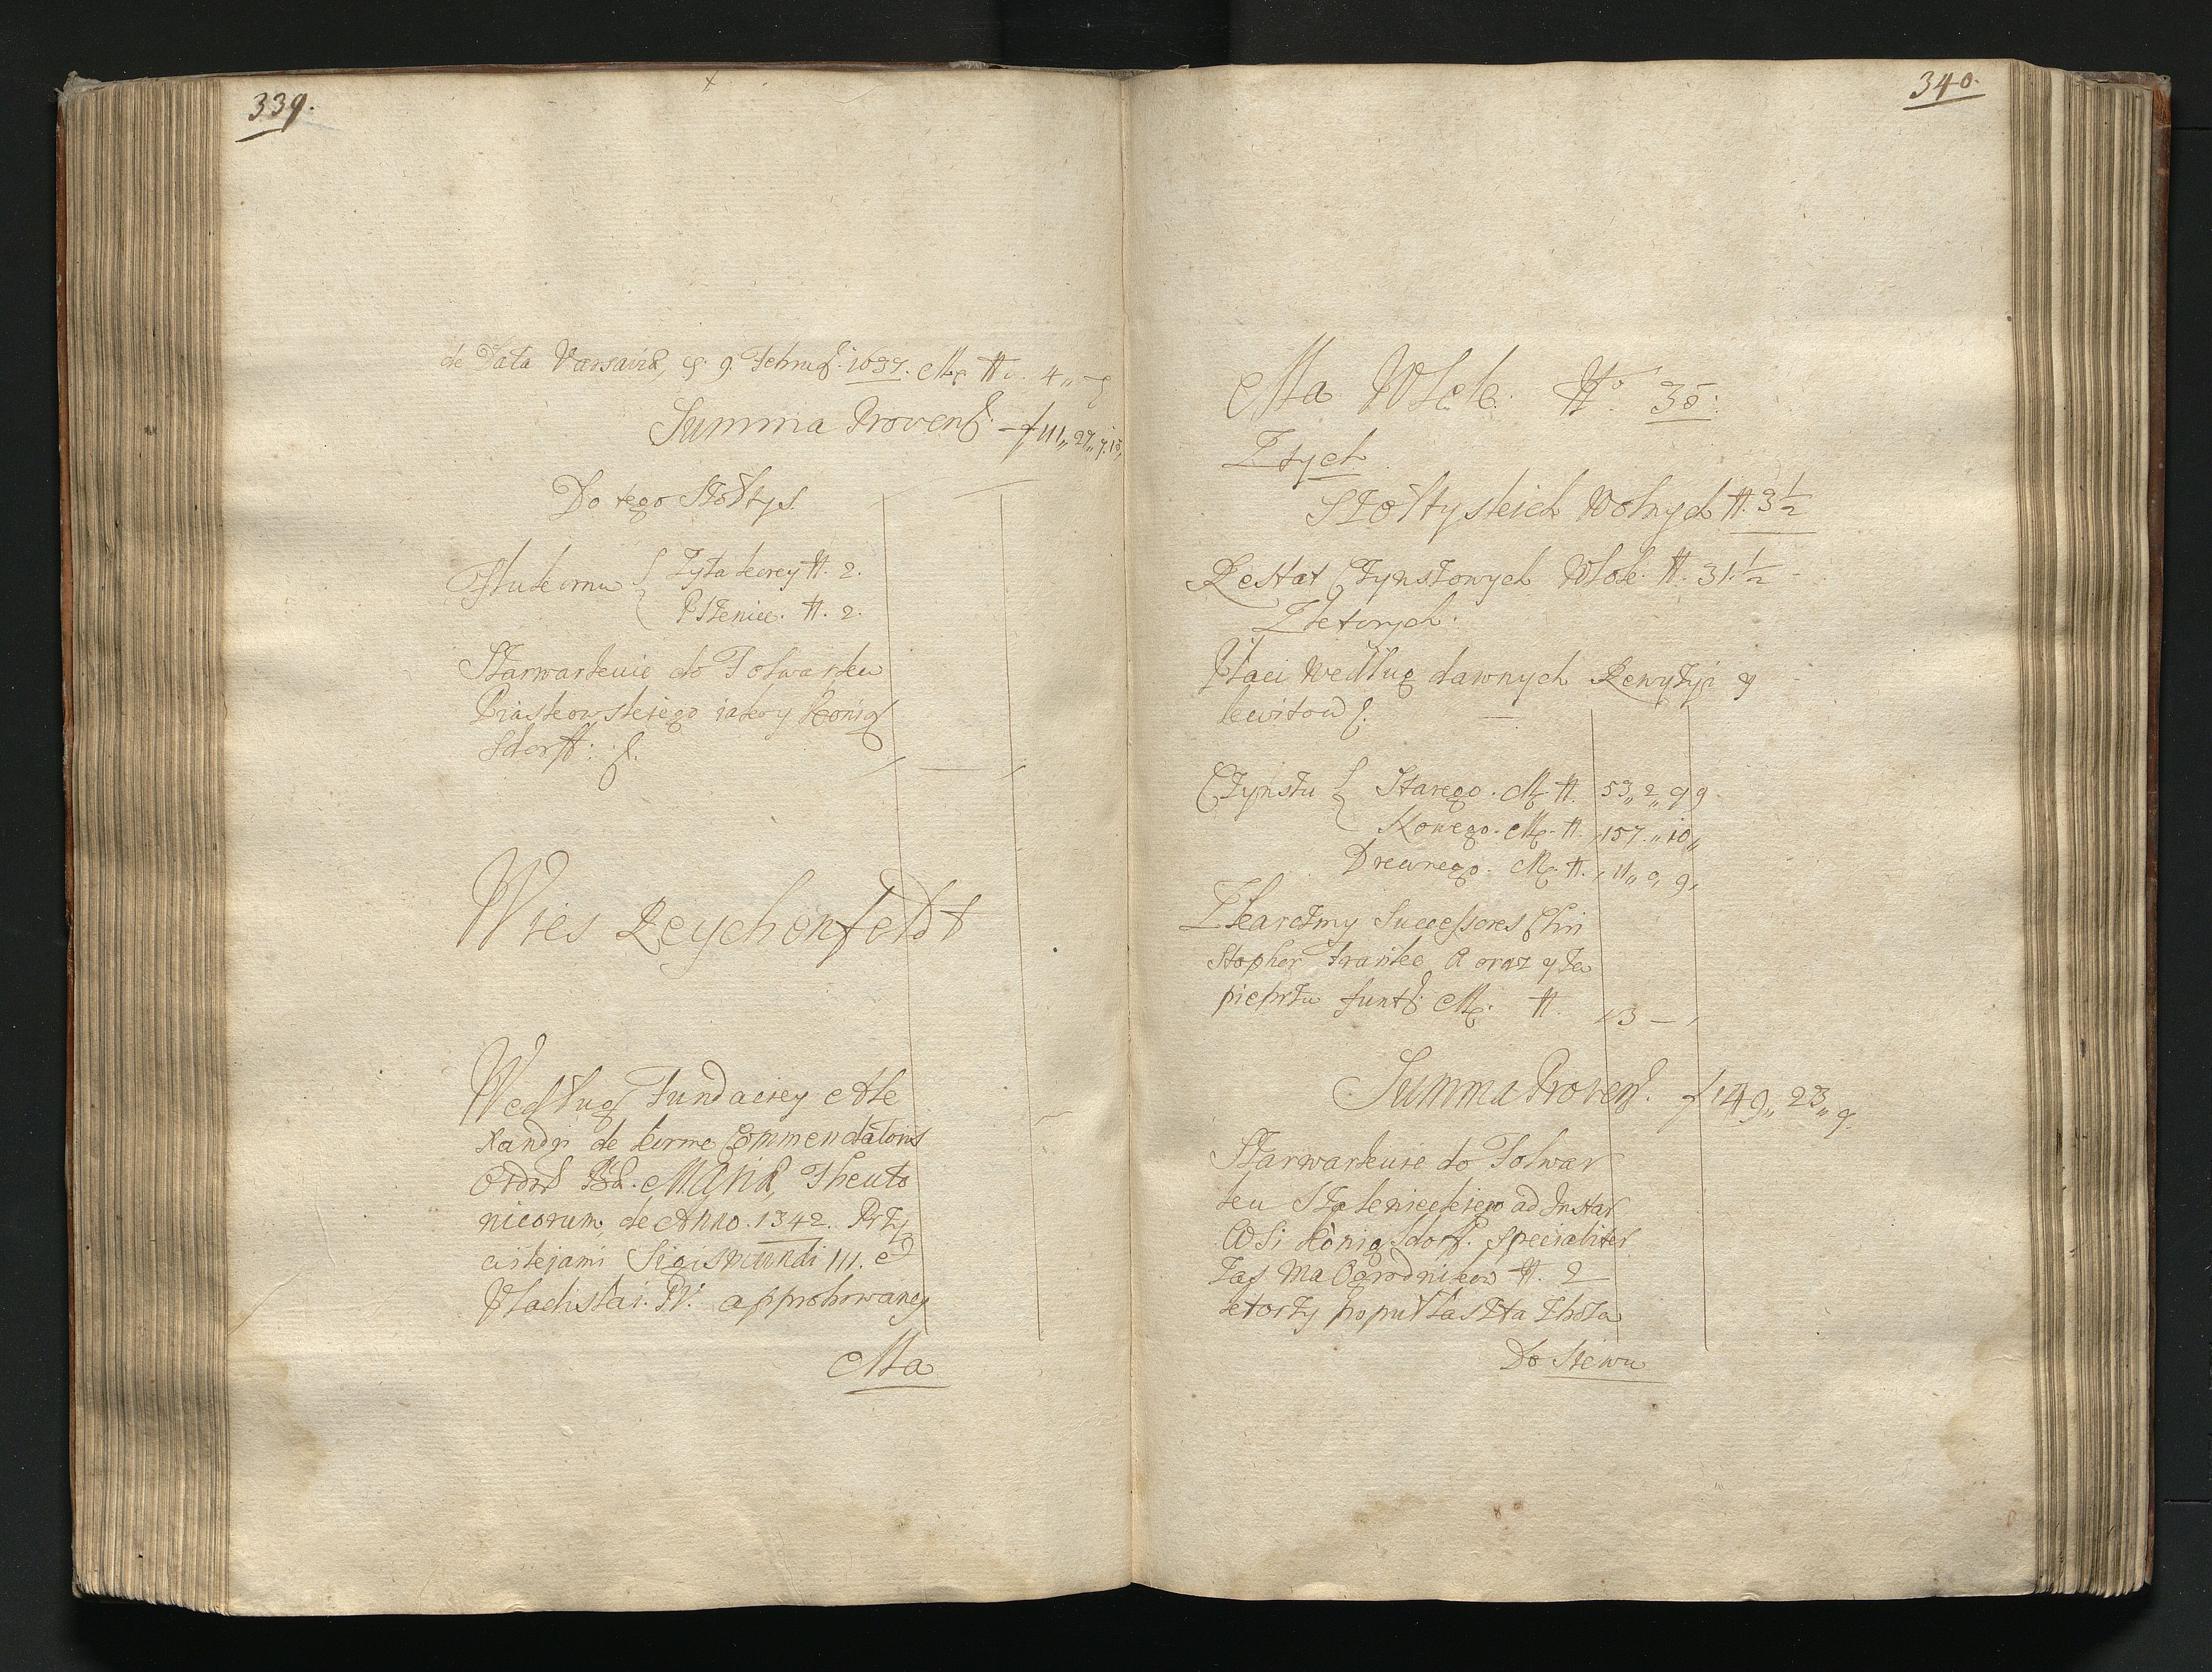 339.
de Data Varsaviæ, 9. Februar. 1637. Mr. tt. 4„ —
Summa Provent. —f 111„ 27„
Do tego Szołtys
Zyta korcy tt. 2.
Pszenice. tt. 2.
Szarwarkuie do Folwarku
Piaskowskiego iako y König
sdorff: s.
Wies Reychenfeldt
Według Fundaciey Ale
xandri de Commendatoris
Ordin. B. MARIÆ Theuto
nicorum, de Anno. 1342. Przy
Sigismundi III. et
Vladislai. IV. approbowaney
Ma
340.
Ma Włok. No. 35.
Z tych
Szołtyskich Wolnych tt. 3½
Restat Czynszowych Włok. tt. 31.½
Z ktorych.
Płaci według dawnych Rewizyi y
kwitow s.
Czynszu Starego. Mr. tt. 53„ 2„ 9
Nowego. Mr. tt. 157„ 10„
Drewnego. Mr. tt. 11„ 9„
Z karczmy Successores Chri
stopher Frantke A oraz y
pieprzu funt Mr. tt. 3 —
Summa Provent. f 149„ 23„ 9.
Szarwarkuie do Folwar
ku ad Instar
Wsi Königsdorf. specialiter
zas Ma Ogrodnikow tt. 2
ktorzy po puł Łaszta Zboża
Do Siewu